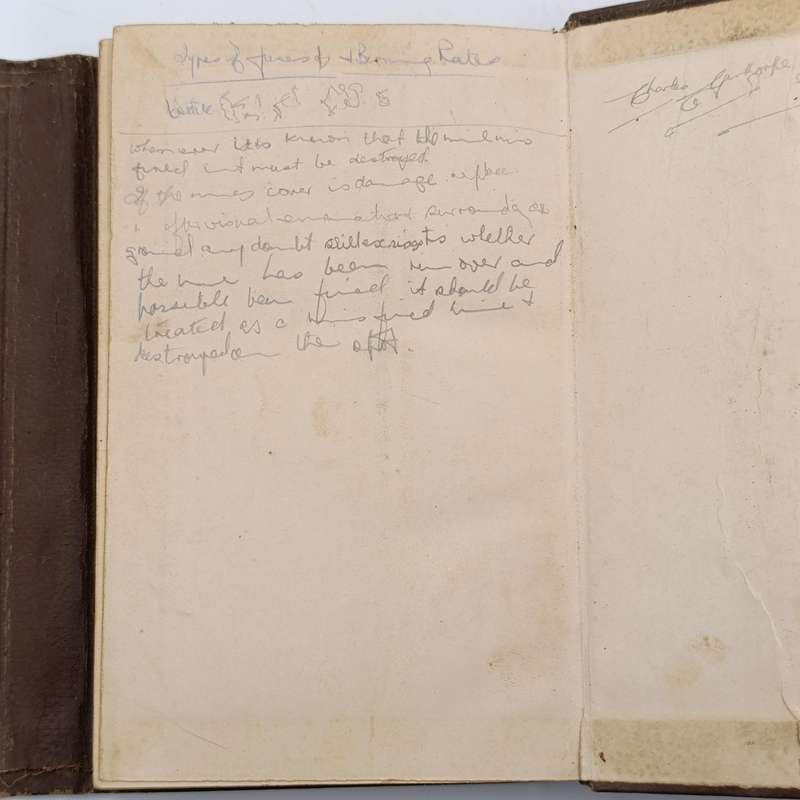 Types of fuses & Burning Rates
whenever it is known that the mine is
fired it must be destroyed
If the mines cover is damage replace
surrounding
ground any doubt still exists to whether
the mine has been run over and
possible been fired it should be
treated as a misfired mine &
destroyed on the spot.
Charles